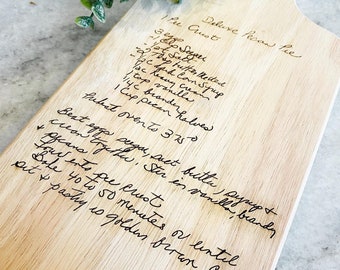 Deluxe Pecan Pie
1 Pie Crust
3 eggs
1 Cup Sugar
Salt
2 Butter Melted
Dark Corn Syrup
Heavy Cream
1 tsp vanilla
1/4 c brandy
1 cup pecan halves
Preheat oven to 375°
Beat eggs, sugar, salt, butter, syrup &
cream together. Stir in vanilla, brandy
& pecans
Pour into pie crust
Bake 40 to 50 minutes or until
set & pastry is golden brown